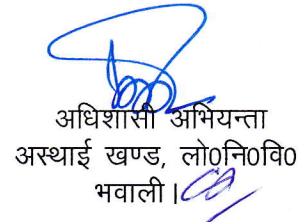 अधिशासी अभियन्ता
अस्थाई खण्ड, लो0नि0वि0
भवाली।